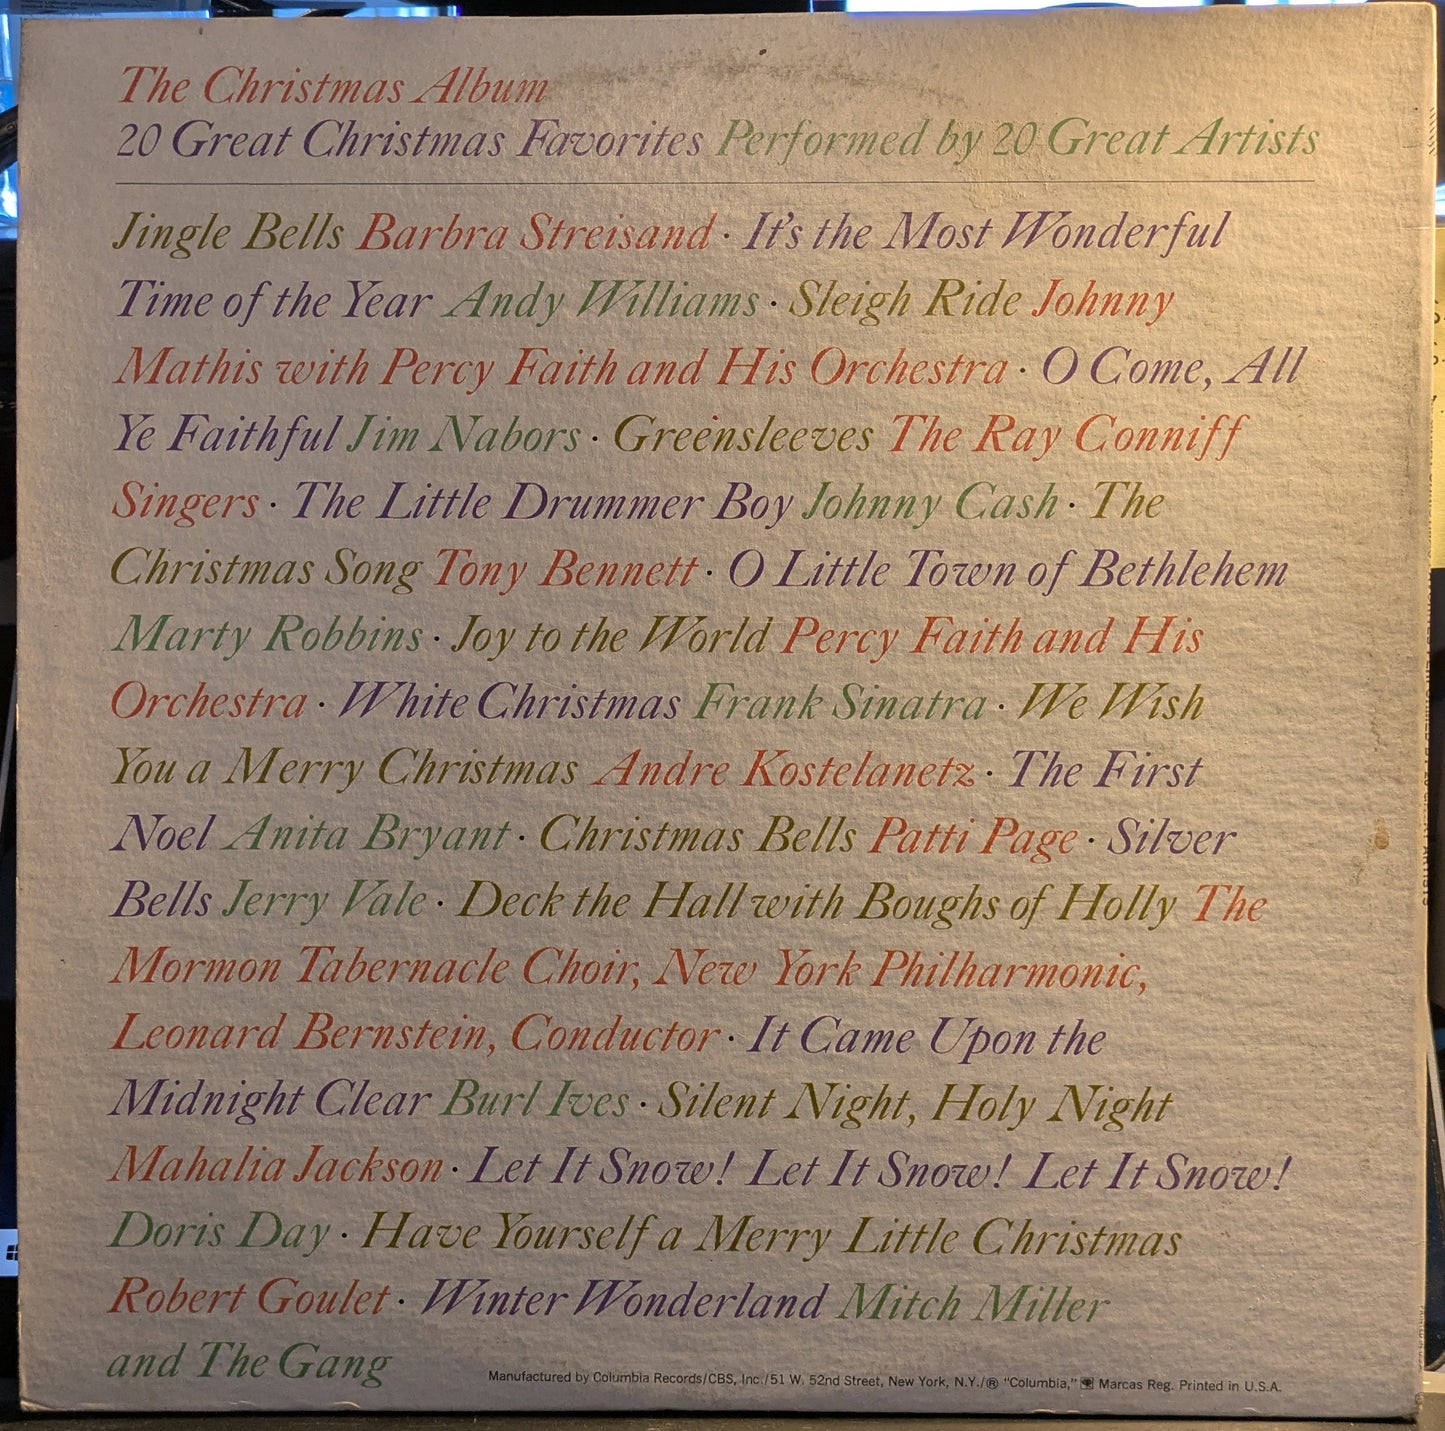 The Christmas Album
20 Great Christmas Favorites Performed by 20 Great Artists
Jingle Bells Barbra Streisand · It's the Most Wonderful
Time of the Year Andy Williams · Sleigh Ride Johnny
Mathis with Percy Faith and His Orchestra · O Come, All
Ye Faithful Jim Nabors · Greensleeves The Ray Conniff
Singers · The Little Drummer Boy Johnny Cash · The
Christmas Song Tony Bennett · O Little Town of Bethlehem
Marty Robbins · Joy to the World Percy Faith and His
Orchestra · White Christmas Frank Sinatra · We Wish
You a Merry Christmas Andre Kostelanetz · The First
Noel Anita Bryant · Christmas Bells Patti Page · Silver
Bells Jerry Vale · Deck the Hall with Boughs of Holly The
Mormon Tabernacle Choir, New York Philharmonic,
Leonard Bernstein, Conductor · It Came Upon the
Midnight Clear Burl Ives · Silent Night, Holy Night
Mahalia Jackson · Let It Snow! Let It Snow! Let It Snow!
Doris Day · Have Yourself a Merry Little Christmas
Robert Goulet · Winter Wonderland Mitch Miller
and The Gang
Manufactured by Columbia Records/CBS, Inc./51 W. 52nd Street, New York, N.Y./® "Columbia," Marcas Reg. Printed in U.S.A.